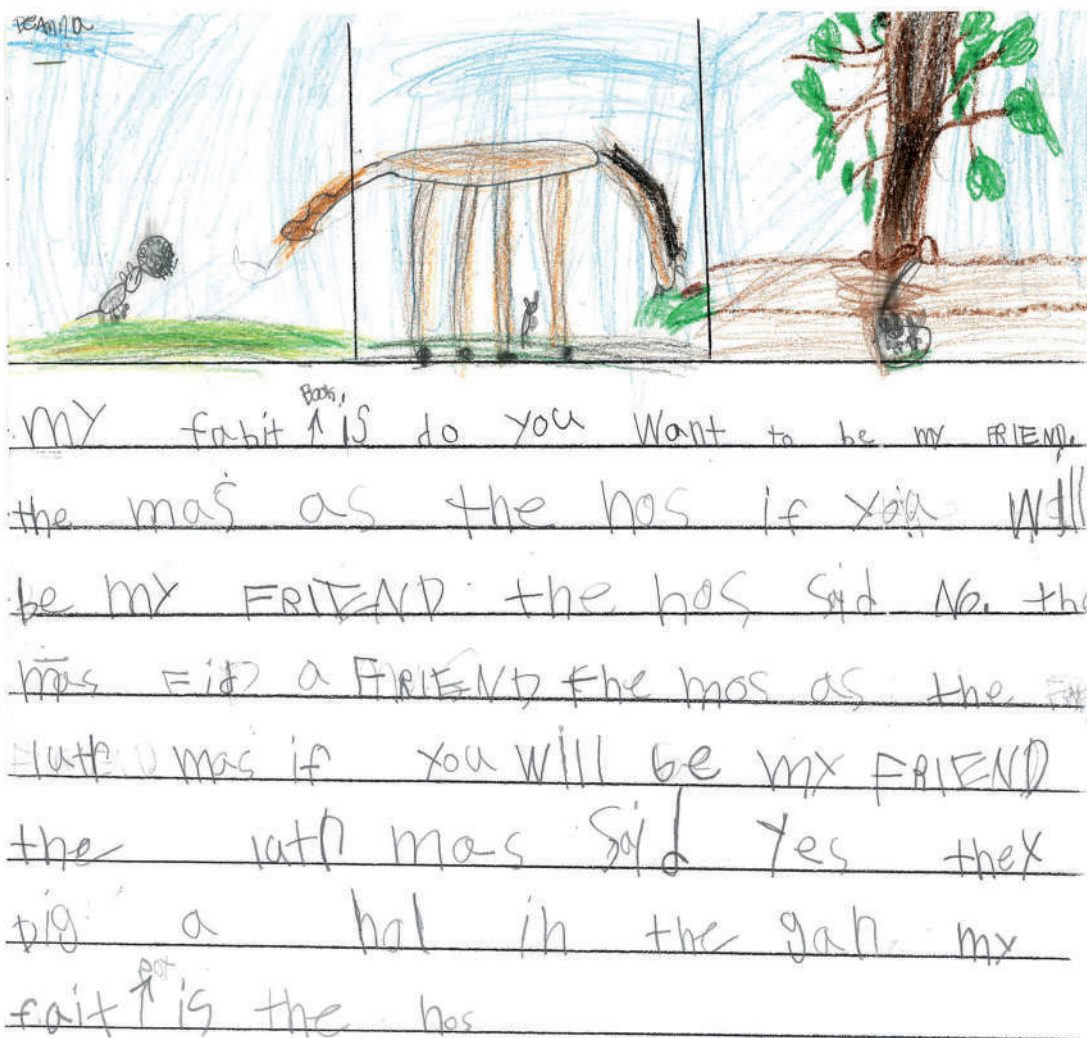 DEANNA
Book.
MY fabit ↑ is do you Want to be my FRIEND.
the mas as the hos if you Will
be my FRIEND. the hos Said No. the
mas Fid a FRIEND the mos as the
luth mas if you will be my FRIEND
the luth mas Said Yes they
Dig a hol in the gan my
pot
fait ↑ is the hos